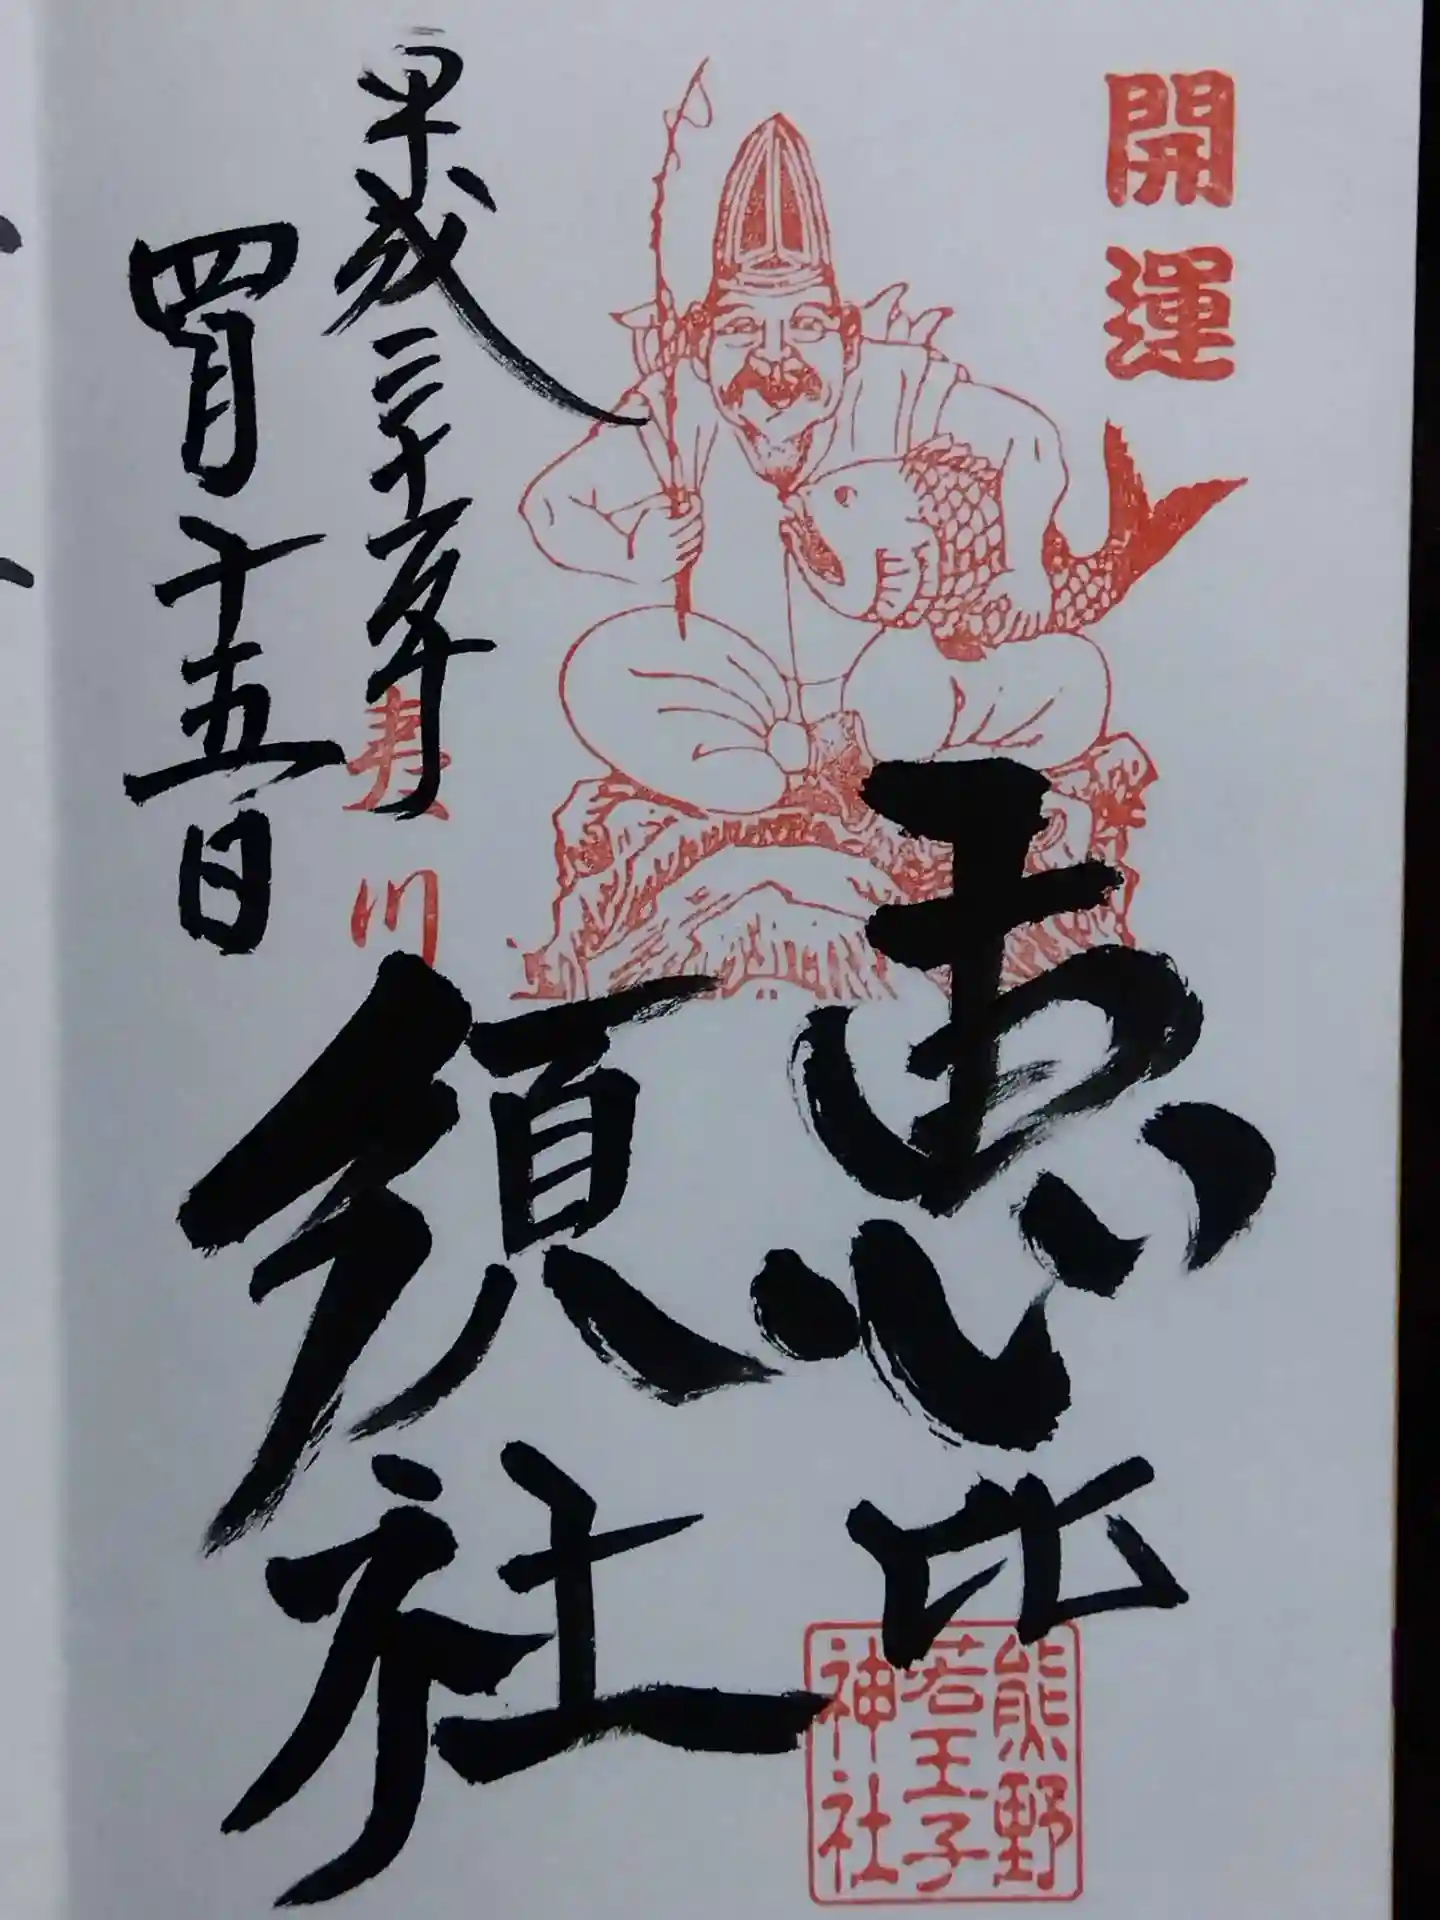 開運
恵比
須社
平成三十年
四月十五日
寿川
熊野
若王子
神社